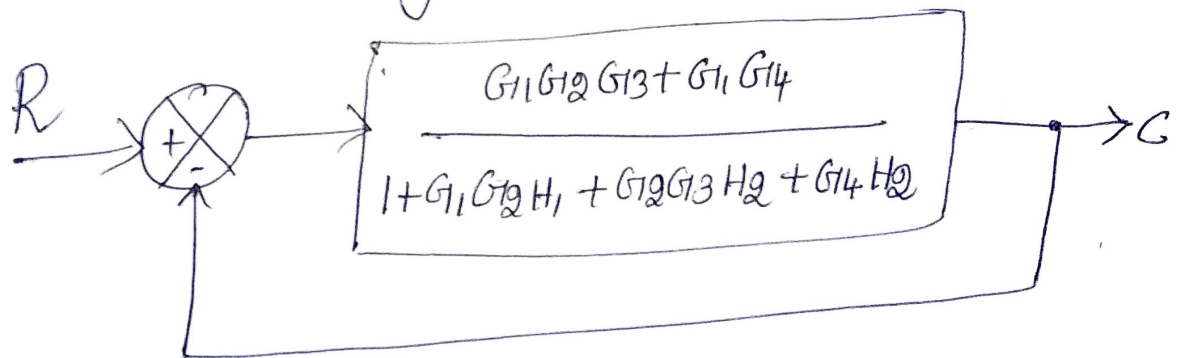 R
+
-
G1G2G3+G1G4
1+G1G2H1+G2G3H2+G4H2
C